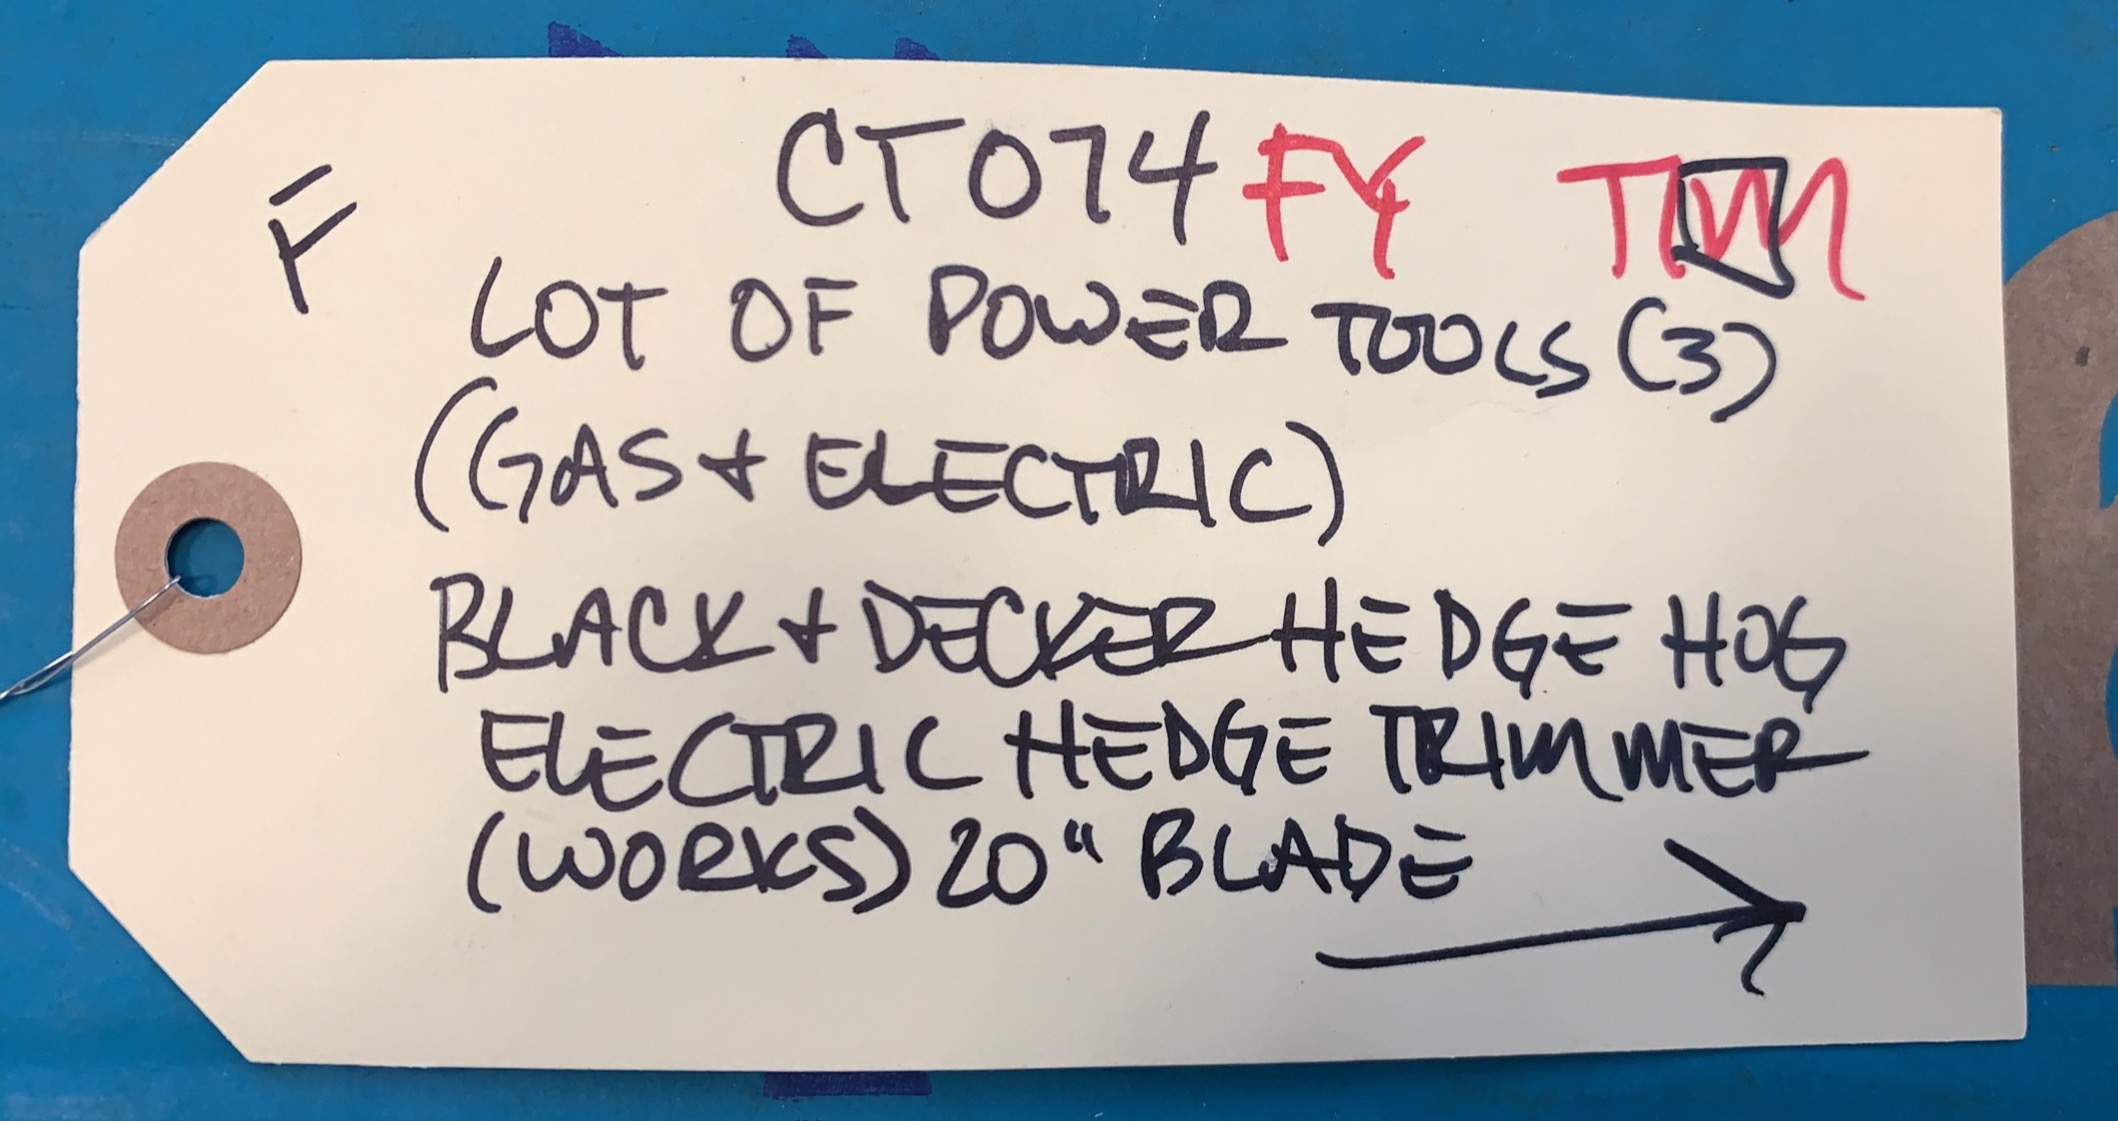 F CT074 FY TIM
LOT OF POWER TOOLS (3)
(GAS + ELECTRIC)
BLACK + DECKER HEDGE HOG
ELECTRIC HEDGE TRIMMER
(WORKS) 20" BLADE